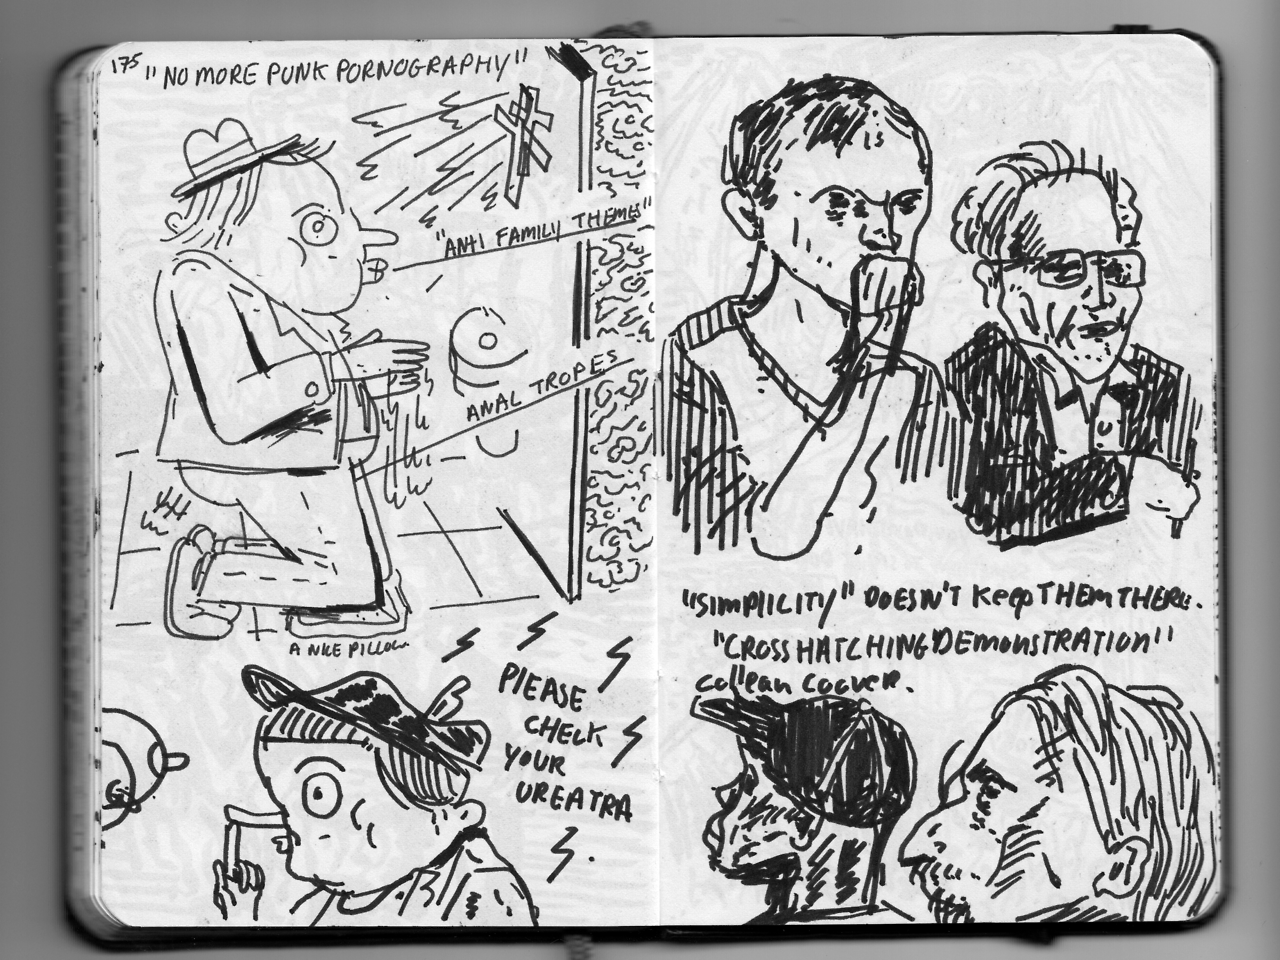 175
"NO MORE PUNK PORNOGRAPHY"
"ANTI FAMILY THEMES"
ANAL TROPES
A NICE PILLOW
PLEASE
CHECK
YOUR
UREATRA
"SIMPLICITY" DOESN'T KEEP THEM THERE.
"CROSSHATCHING DEMONSTRATION"
COLLEAN COOVER.